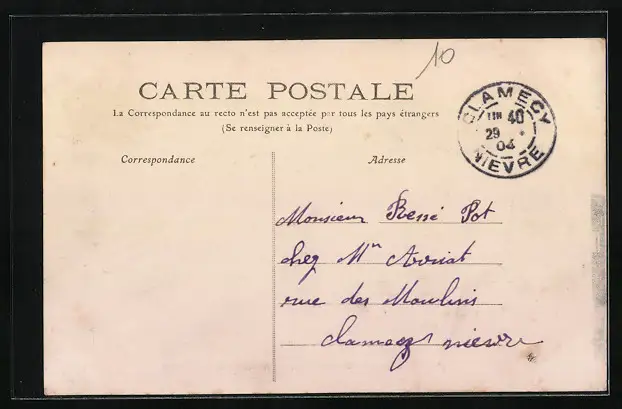 10
CARTE POSTALE
La Correspondance au recto n'est pas acceptée par tous les pays étrangers
(Se renseigner à la Poste)
CLAMECY
40
29
04
NIEVRE
Correspondance
Adresse
Monsieur Pot
chez Mn
rue des Moulins
Clamecy nievre